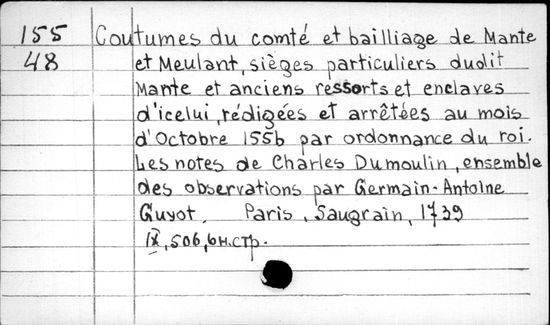 155 Coutumes du comté et bailliage de Mante
48 et Meulant, sièges particuliers dudit
Mante et anciens ressorts et enclaves
d'icelui, rédigées et arrêtées au mois
d'Octobre 1556 par ordonnance du roi.
Les notes de Charles Dumoulin, ensemble
des observations par Germain-Antoine
Guyot. Paris, Saugrain, 1739
IX, 506, 6 н. стр.